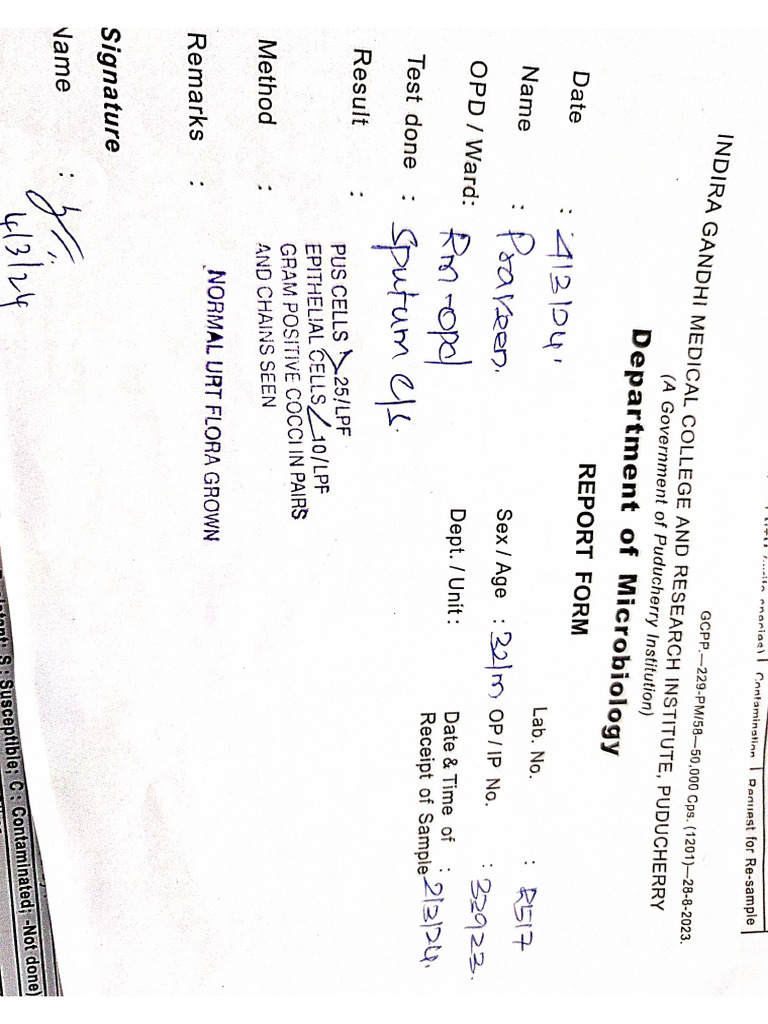 Contamination | Request for Re-sample
GCPP.—229-PM/58—50,000 Cps. (1201)—28-8-2023.
INDIRA GANDHI MEDICAL COLLEGE AND RESEARCH INSTITUTE, PUDUCHERRY
(A Government of Puducherry Institution)
Department of Microbiology
REPORT FORM
Lab. No. : R517
Date : 4/3/24.
Name : Praveen. Sex / Age : 32/m OP / IP No. : 32923.
OPD / Ward: Rm-opd Dept. / Unit : Date & Time of Receipt of Sample : 2/3/24.
Test done : Sputum c/s.
Result : PUS CELLS > 25/LPF
EPITHELIAL CELLS < 10/LPF
GRAM POSITIVE COCCI IN PAIRS
AND CHAINS SEEN
Method :
Remarks : NORMAL URT FLORA GROWN
Signature
Name :
4/3/24
S : Susceptible; C : Contaminated; -Not done)